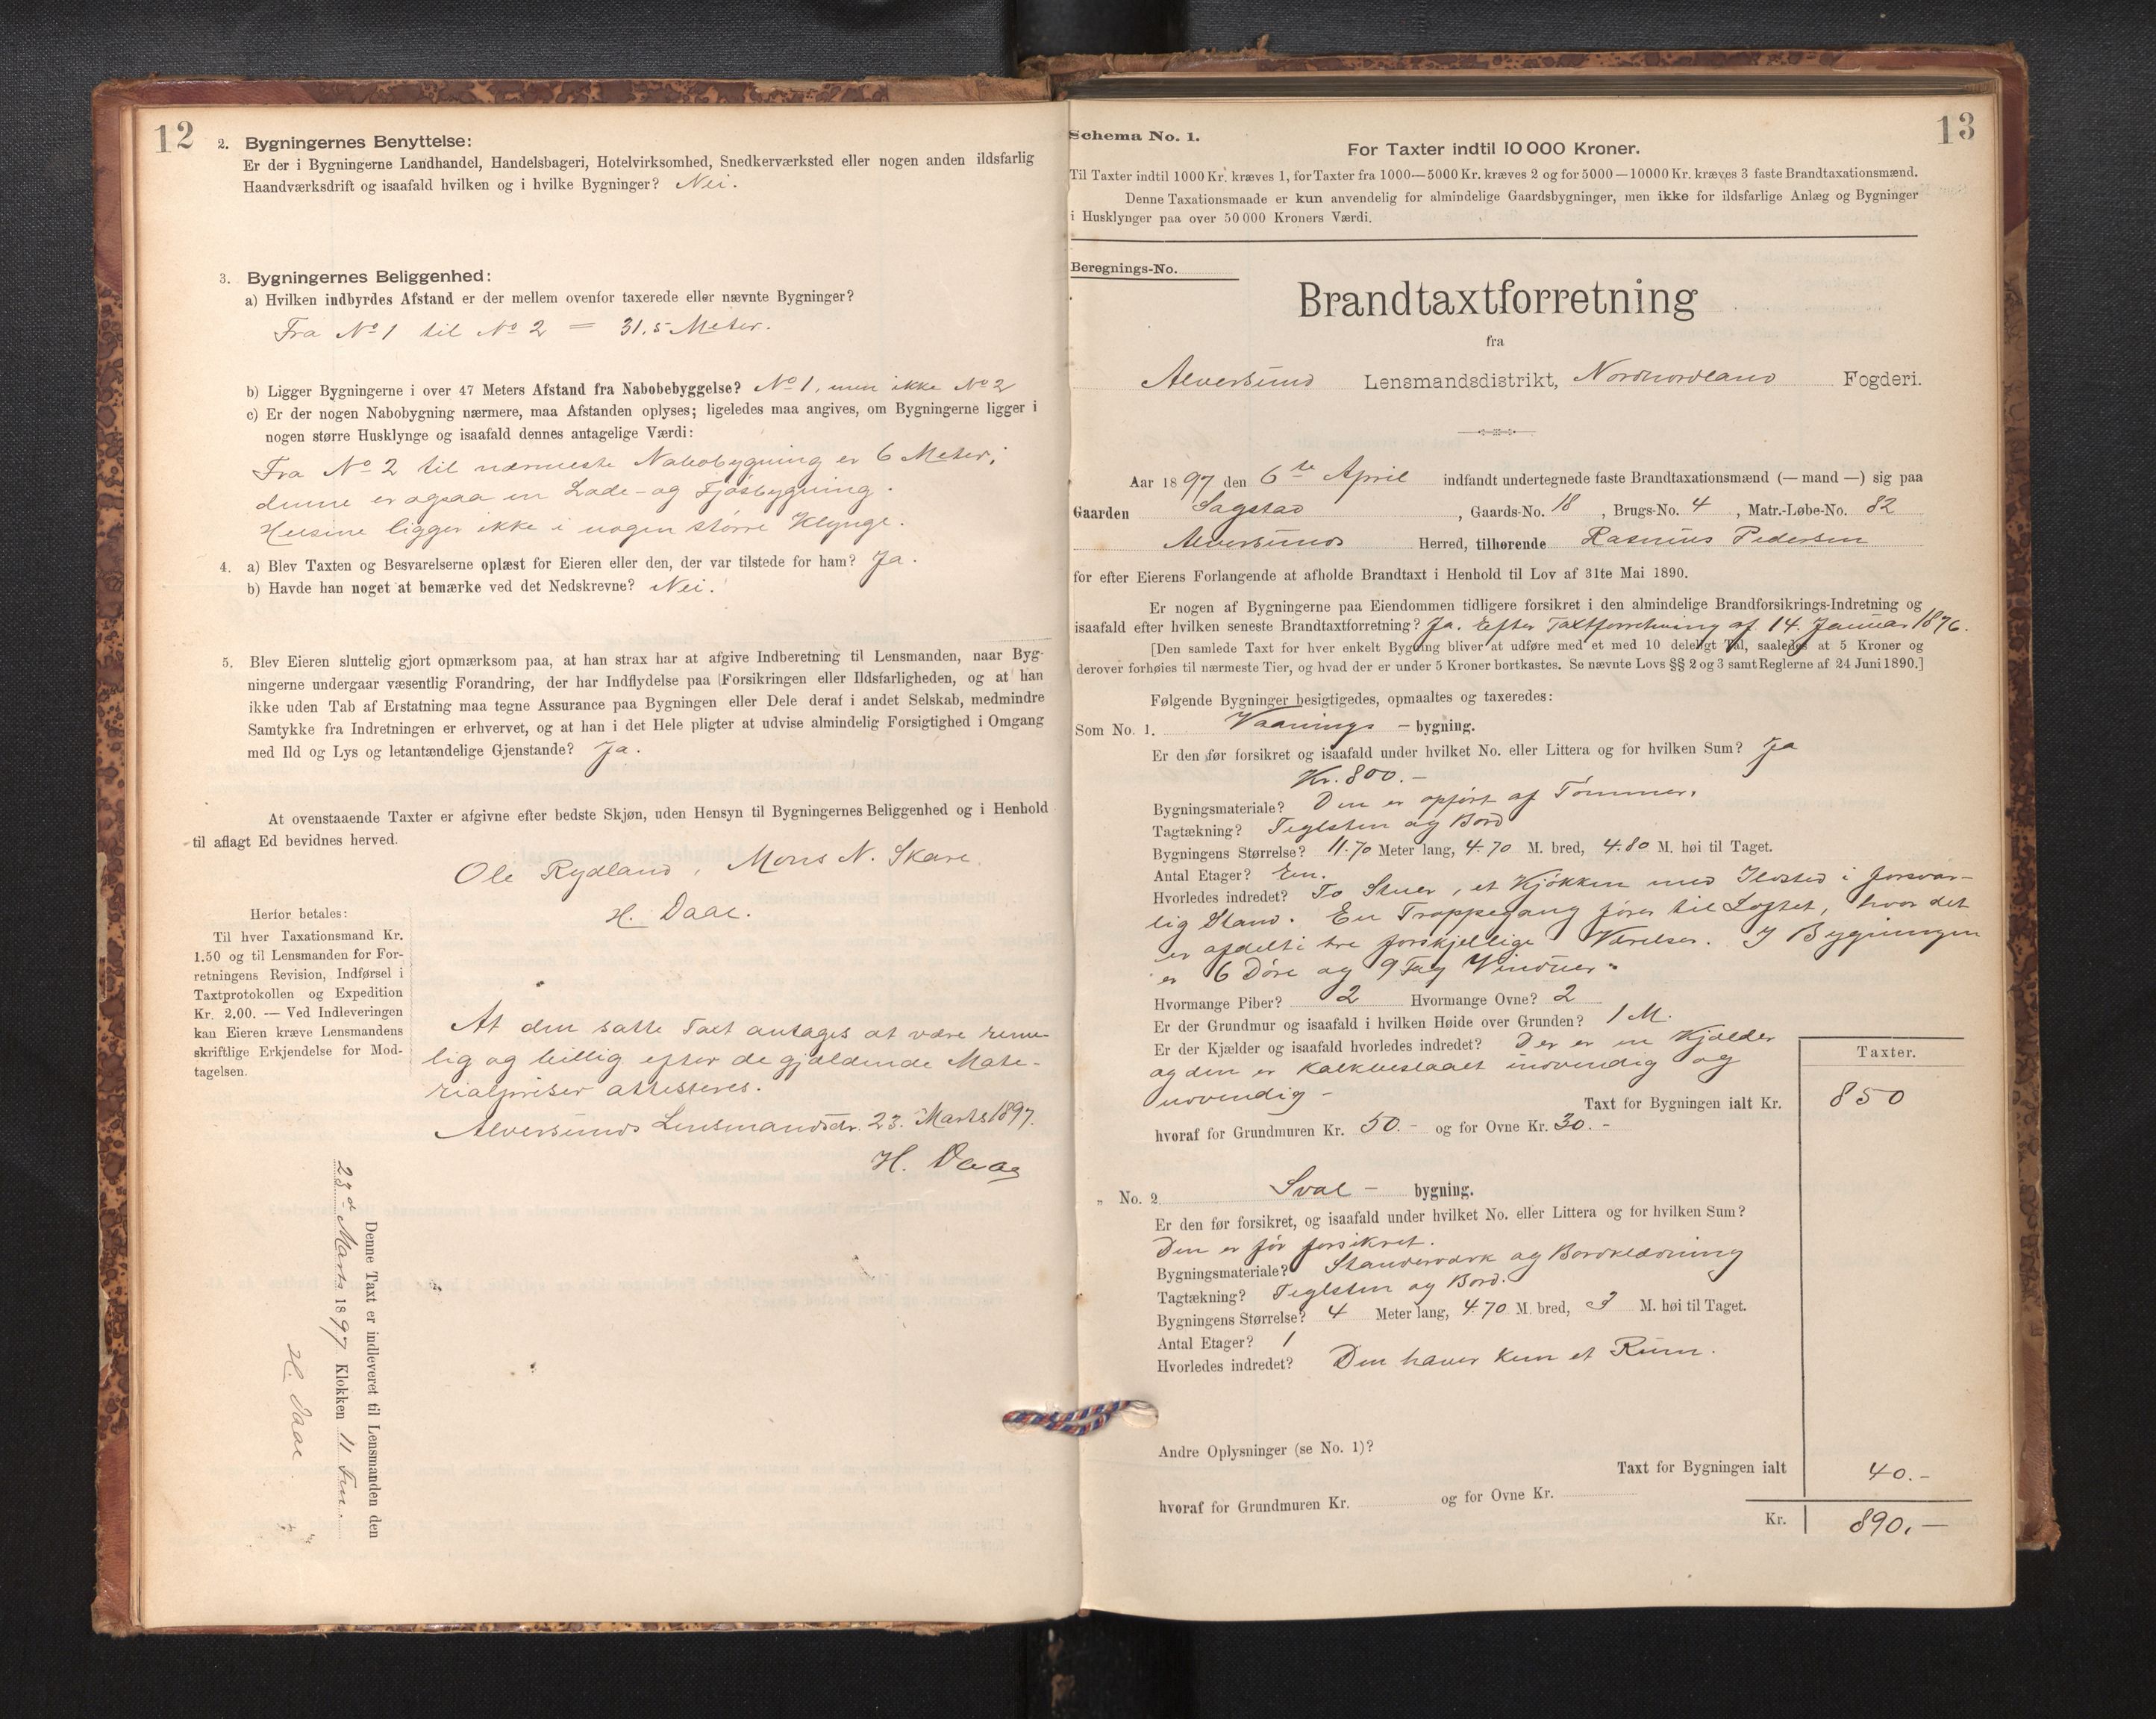 12
2. Bygningernes Benyttelse:
Er der i Bygningerne Landhandel, Handelsbageri, Hotelvirksomhed, Snedkerværksted eller nogen anden ildsfarlig
Haandværksdrift og isaafald hvilken og i hvilke Bygninger? Nei.
3. Bygningernes Beliggenhed:
a) Hvilken indbyrdes Afstand er der mellem ovenfor taxerede eller nævnte Bygninger?
Fra No 1 til No 2 = 31,5 Meter.
b) Ligger Bygningerne i over 47 Meters Afstand fra Nabobebyggelse? No 1, men ikke No 2
c) Er der nogen Nabobygning nærmere, maa Afstanden oplyses; ligeledes maa angives, om Bygningerne ligger i
nogen større Husklynge og isaafald dennes antagelige Værdi:
Fra No 2 til nærmeste Nabobygning er 6 Meter;
denne er ogsaa en Lade- og Fjøsbygning.
Husene ligger ikke i nogen større Klynge.
4. a) Blev Taxten og Besvarelserne oplæst for Eieren eller den, der var tilstede for ham? Ja.
b) Havde han noget at bemærke ved det Nedskrevne? Nei.
5. Blev Eieren sluttelig gjort opmærksom paa, at han strax har at afgive Indberetning til Lensmanden, naar Byg-
ningerne undergaar væsentlig Forandring, der har Indflydelse paa Forsikringen eller Ildsfarligheden, og at han
ikke uden Tab af Erstatning maa tegne Assurance paa Bygningen eller Dele deraf i andet Selskab, medmindre
Samtykke fra Indretningen er erhvervet, og at han i det Hele pligter at udvise almindelig Forsigtighed i Omgang
med Ild og Lys og letantændelige Gjenstande? Ja.
At ovenstaaende Taxter er afgivne efter bedste Skjøn, uden Hensyn til Bygningernes Beliggenhed og i Henhold
til aflagt Ed bevidnes herved.
Ole Rydland, Mons N. Skare
H. Daae.
Herfor betales:
Til hver Taxationsmand Kr.
1.50 og til Lensmanden for For-
retningens Revision, Indførsel i
Taxtprotokollen og Expedition
Kr. 2.00. — Ved Indleveringen
kan Eieren kræve Lensmandens
skriftlige Erkjendelse for Mod-
tagelsen.
At den satte Taxt antages at være rime-
lig og billig efter de gjældende Mate-
rialpriser attesteres.
Alversunds Lensmandsdr. 23. Marts 1897.
H. Daae
Denne Taxt er indleveret til Lensmanden den
23de Marts 1897 Klokken 11 Fm.
H. Daae
13
Schema No. 1.
For Taxter indtil 10 000 Kroner.
Til Taxter indtil 1000 Kr. kræves 1, for Taxter fra 1000—5000 Kr. kræves 2 og for 5000—10000 Kr. kræves 3 faste Brandtaxationsmænd.
Denne Taxationsmaade er kun anvendelig for almindelige Gaardsbygninger, men ikke for ildsfarlige Anlæg og Bygninger
i Husklynger paa over 50 000 Kroners Værdi.
Beregnings-No.
Brandtaxtforretning
fra
Alversund Lensmandsdistrikt, Nordhordland Fogderi.
Aar 1897 den 6te April indfandt undertegnede faste Brandtaxationsmænd (— mand —) sig paa
Gaarden Sagstad, Gaards-No. 18, Brugs-No. 4, Matr.-Løbe-No. 82
Alversunds Herred, tilhørende Rasmus Pedersen
for efter Eierens Forlangende at afholde Brandtaxt i Henhold til Lov af 31te Mai 1890.
Er nogen af Bygningerne paa Eiendommen tidligere forsikret i den almindelige Brandforsikrings-Indretning og
isaafald efter hvilken seneste Brandtaxtforretning? Ja. Efter Taxtforretning af 14. Januar 1876.
[Den samlede Taxt for hver enkelt Bygning bliver at udføre med et med 10 deleligt Tal, saaledes at 5 Kroner og
derover forhøies til nærmeste Tier, og hvad der er under 5 Kroner bortkastes. Se nævnte Lovs §§ 2 og 3 samt Reglerne af 24 Juni 1890.]
Følgende Bygninger besigtigedes, opmaaltes og taxeredes:
Som No. 1. Vaanings - bygning.
Er den før forsikret og isaafald under hvilket No. eller Littera og for hvilken Sum? Ja
Kr. 800.-
Bygningsmateriale? Den er opført af Tømmer.
Tagtækning? Teglsten og Bord
Bygningens Størrelse? 11.70 Meter lang, 4.70 M. bred, 4.80 M. høi til Taget.
Antal Etager? En.
Hvorledes indredet? To Stuer, et Kjøkken med Ildsted i forsvar-
lig Stand. En Trappegang fører til Loftet, hvor det
er afdelt i tre forskjellige Værelser. I Bygningen
er 6 Døre og 9 Fag Vinduer.
Hvormange Piber? 2 Hvormange Ovne? 2
Er der Grundmur og isaafald i hvilken Høide over Grunden? 1 M.
Er der Kjælder og isaafald hvorledes indredet? Der er en Kjælder
og den er Kalkbeslaaet indvendig og
udvendig -
Taxter.
Taxt for Bygningen ialt Kr. 850
hvoraf for Grundmuren Kr. 50.- og for Ovne Kr. 30.-
„ No. 2 Sval - bygning.
Er den før forsikret, og isaafald under hvilket No. eller Littera og for hvilken Sum?
Den er før forsikret.
Bygningsmateriale? Standerværk og Bordklædning
Tagtækning? Teglsten og Bord.
Bygningens Størrelse? 4 Meter lang, 4.70 M. bred, 3 M. høi til Taget.
Antal Etager? 1
Hvorledes indredet? Den haver kun et Rum.
Andre Oplysninger (se No. 1)?
Taxt for Bygningen ialt 40.-
hvoraf for Grundmuren Kr. og for Ovne Kr.
Kr. 890.-